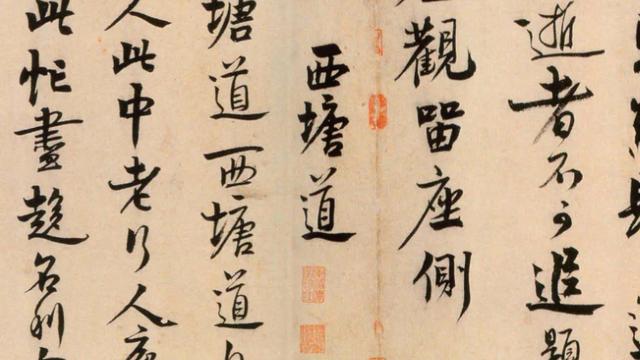 逝者不可追題
觀留座側
西塘道
塘道西塘道
人此中老行人
此忙盡趨名利